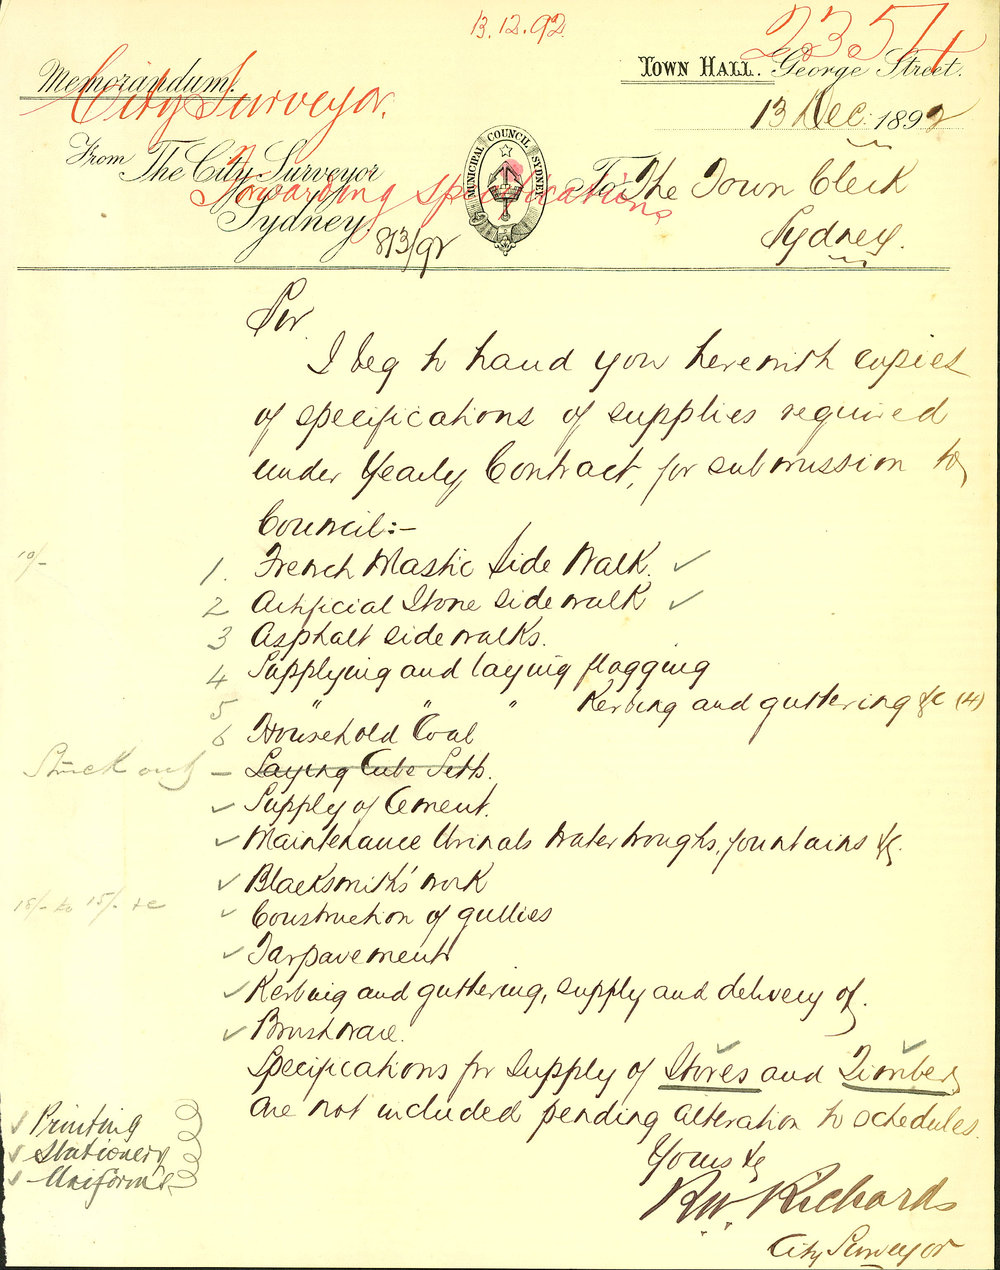 13.12.92.
2354
Memorandum.
City Surveyor.
TOWN HALL. George Street.
13 Dec. 1892
From The City Surveyor
Sydney.
MUNICIPAL COUNCIL SYDNEY
Forwarding specifications
813/92
To The Town Clerk
Sydney.
Sir
I beg to hand you herewith copies
of specifications of supplies required
under Yearly Contract, for submission to
Council:-
10/-
1. French Mastic Side Walk. ✓
2 Artificial Stone side walk ✓
3 Asphalt side walks.
4 Supplying and laying flagging
5 " " " Kerbing and guttering &c (4)
6 Household Coal
Struck out – Laying Cube Setts.
✓ Supply of Cement.
✓ Maintenance Urinals water troughs, fountains &c.
✓ Blacksmith's work
✓ Construction of gullies
✓ Tarpavement
✓ Kerbing and guttering, supply and delivery of.
✓ Brushware.
Specifications for supply of Stores and Timber,
are not included pending alteration to schedules.
✓ Printing
✓ Stationery
✓ Uniforms
Yours &c
R.W. Richards
City Surveyor